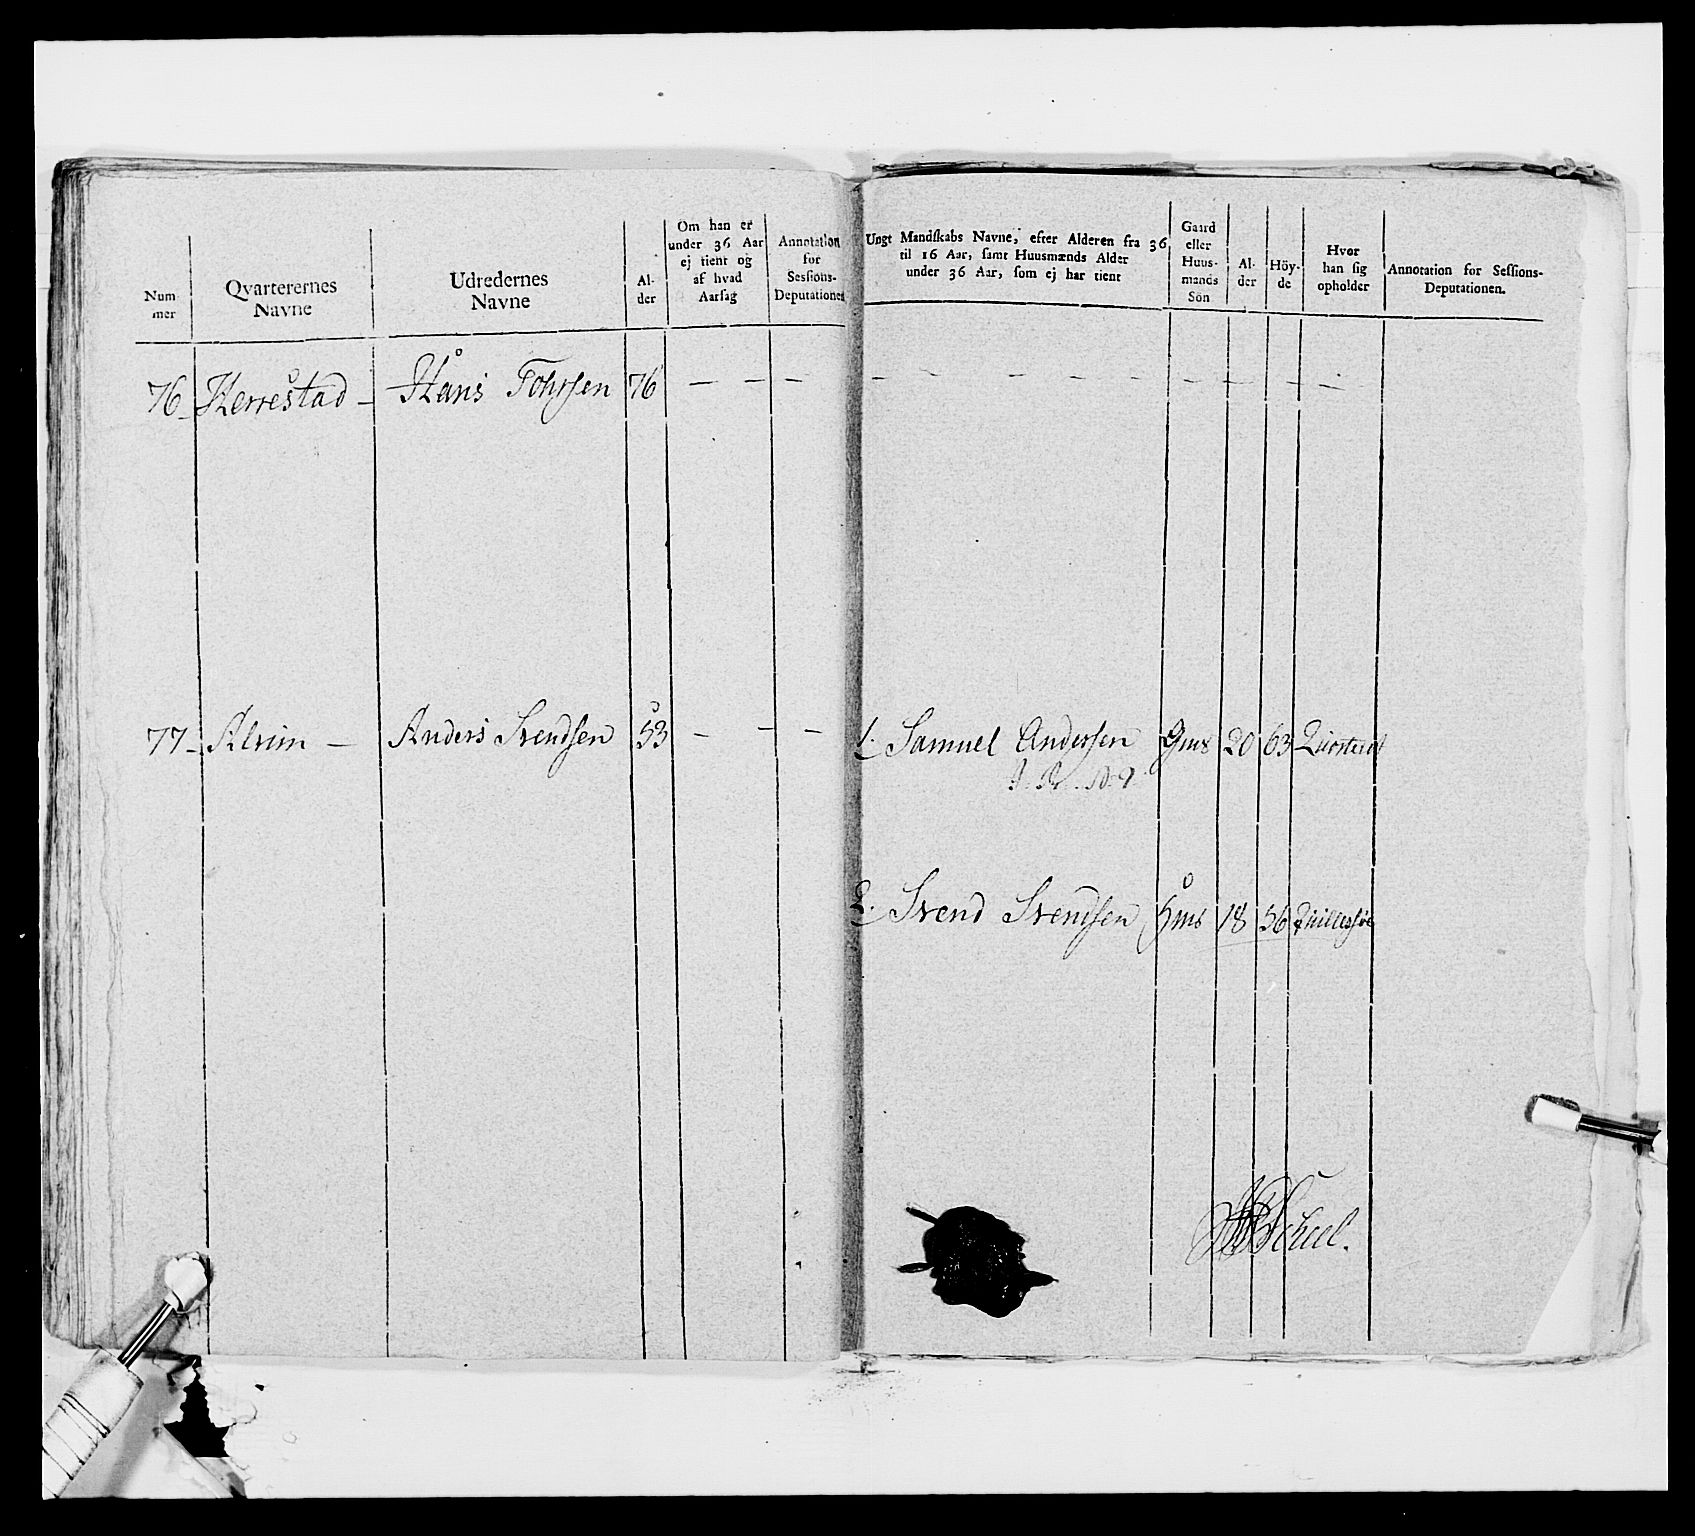 Num-
mer
Qvarterernes
Navne
Udredernes
Navne
Al-
der
Om han er
under 36 Aar
ej tient og
af hvad
Aarsag
Annotation
for
Sessions-
Deputationen
Ungt Mandskabs Navne, efter Alderen fra 36
til 16 Aar, samt Huusmænds Alder
under 36 Aar, som ej har tient
Gaard
eller
Huus-
mands
Sön
Al-
der
Höy-
de
Hvor
han sig
opholder
Annotation for Sessions-
Deputationen.
76 Herrestad — Hans Tohrsen 76 — — —
77 — Alvim — Anders Svendsen 53 — — —
1. Samuel Andersen Gms 20 63
2. Svend Svendsen Hms 18 56